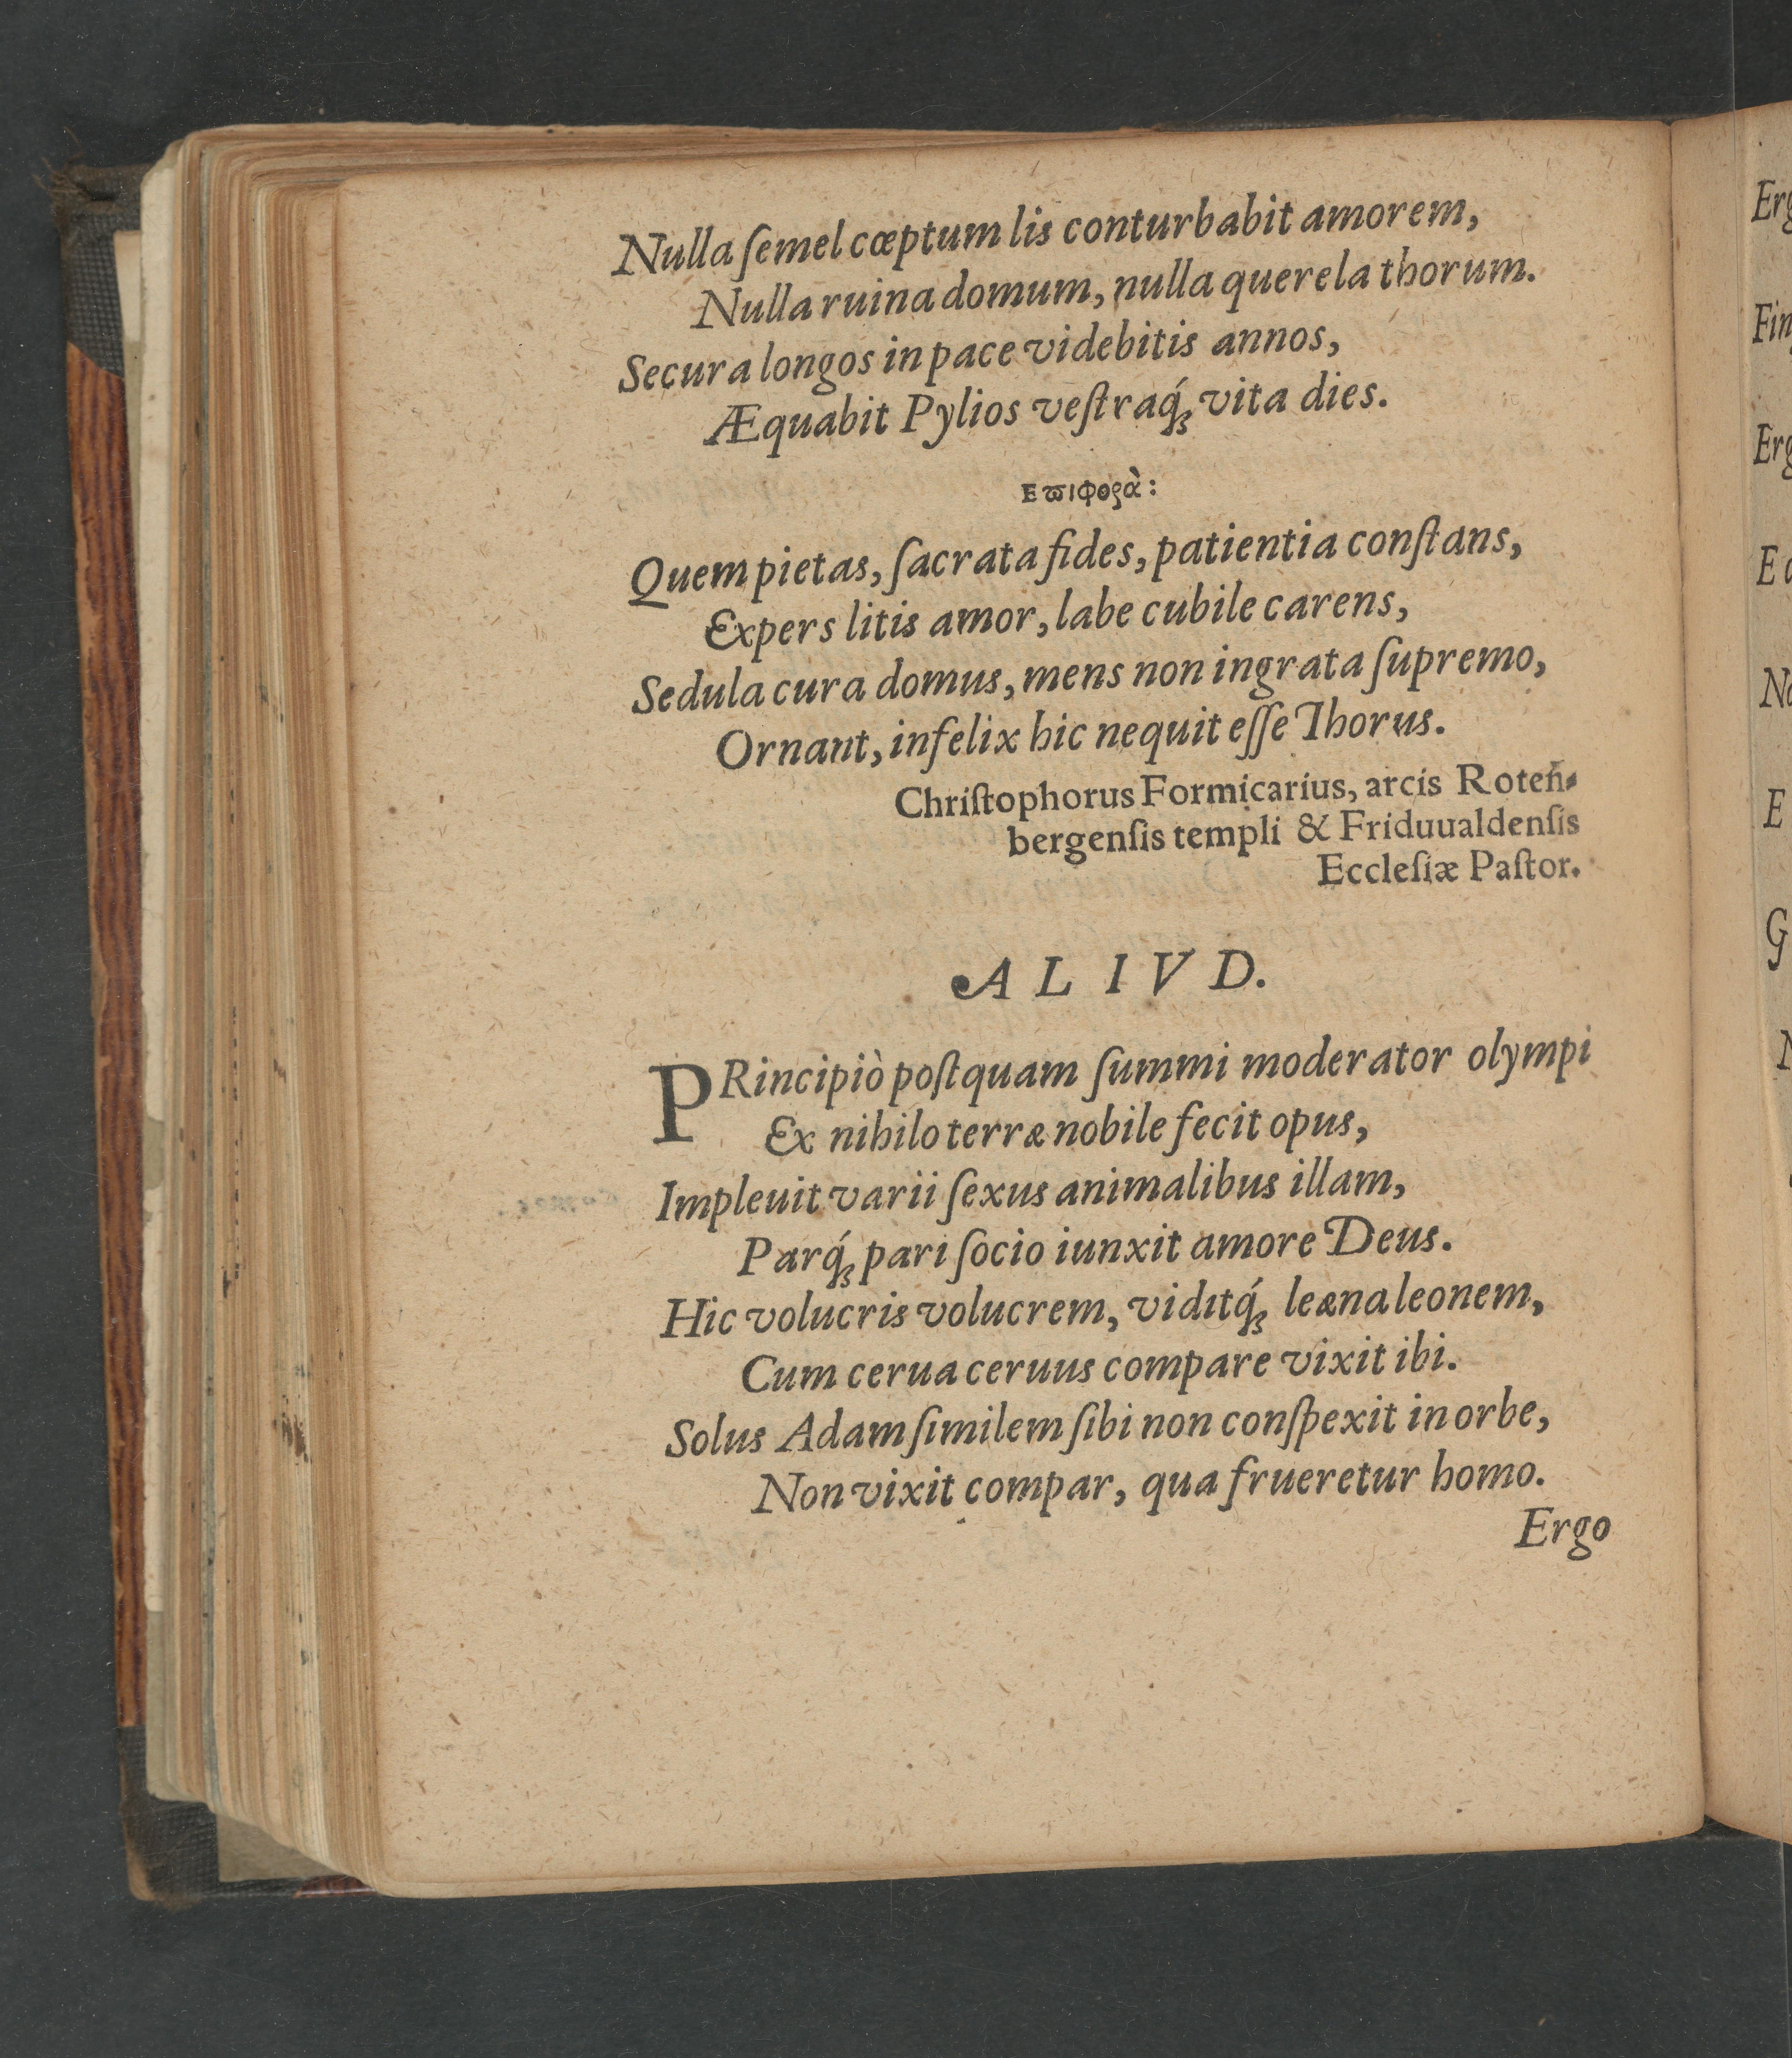 Nulla ſemel cœptum lis conturbabit amorem,
Nulla ruina domum, nulla querela thorum.
Secura longos in pace videbitis annos,
Æquabit Pylios veſtraq́ꝫ vita dies.
Εϖιφορὰ:
Quem pietas, ſacrata fides, patientia conſtans,
Expers litis amor, labe cubile carens,
Sedula cura domus, mens non ingrata ſupremo,
Ornant, infelix hic nequit eſſe Thorus.
Chriſtophorus Formicarius, arcis Roten̄⸗
bergenſis templi & Friduualdenſis
Eccleſiæ Paſtor.
ALIVD.
PRincipiò poſtquam ſummi moderator olympi
Ex nihilo terræ nobile fecit opus,
Impleuit varii ſexus animalibus illam,
Parq́ꝫ pari ſocio iunxit amore Deus.
Hic volucris volucrem, viditq́ꝫ leæna leonem,
Cum cerua ceruus compare vixit ibi.
Solus Adam ſimilem ſibi non conſpexit in orbe,
Non vixit compar, qua frueretur homo.
Ergo